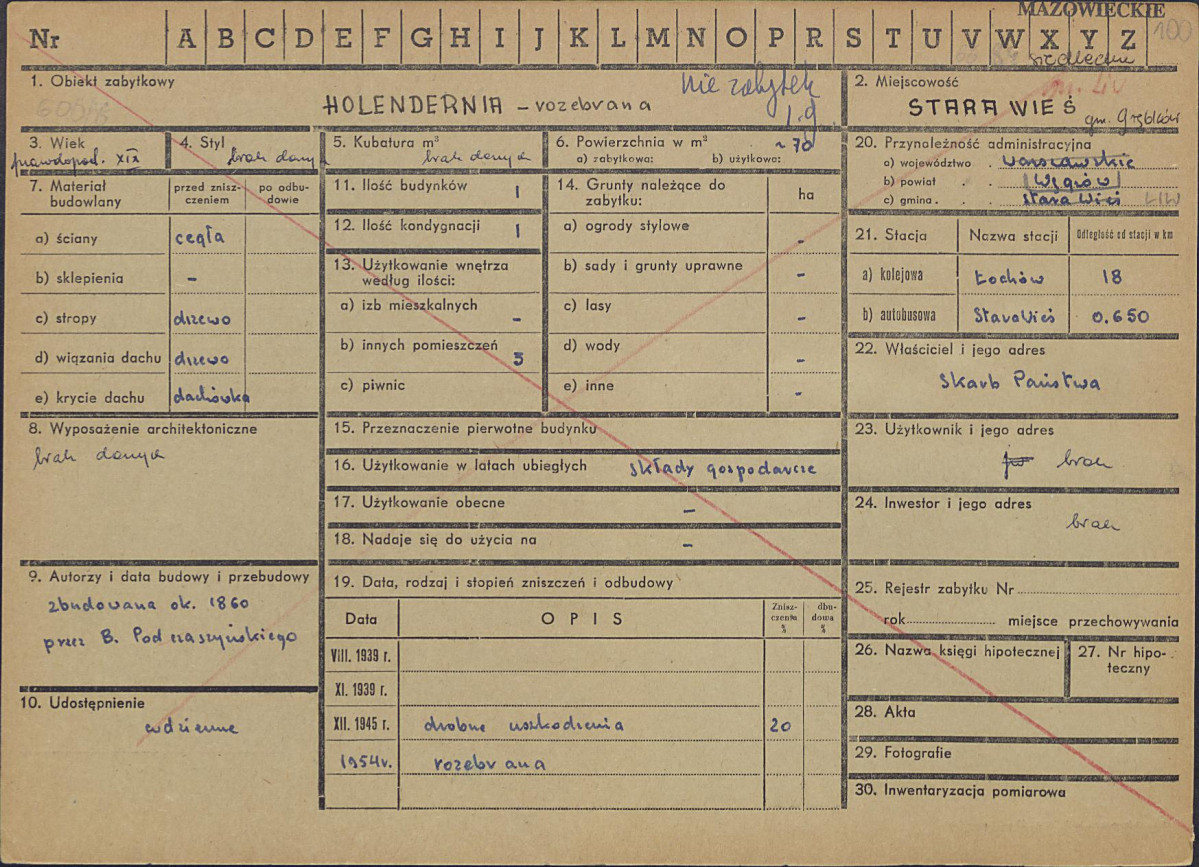 MAZOWIECKIE
100
Nr A B C D E F G H I J K L M N O P R S T U V W X Y Z
siedleckie
1. Obiekt zabytkowy
nie zabytek
HOLENDERNIA – rozebrana
2. Miejscowość
STARA WIEŚ
gm. Grębków
3. Wiek
prawdopod. XIX
4. Styl
brak danych
5. Kubatura m³
brak danych
6. Powierzchnia w m² ~ 70
a) zabytkowa: b) użytkowa:
7. Materiał budowlany
przed zniszczeniem
po odbudowie
a) ściany cegła
b) sklepienia –
c) stropy drzewo
d) wiązania dachu drzewo
e) krycie dachu dachówka
8. Wyposażenie architektoniczne
brak danych
9. Autorzy i data budowy i przebudowy
zbudowana ok. 1860
przez B. Podczaszyńskiego
10. Udostępnienie
codzienne
11. Ilość budynków 1
12. Ilość kondygnacji 1
13. Użytkowanie wnętrza
według ilości:
a) izb mieszkalnych –
b) innych pomieszczeń 3
c) piwnic
14. Grunty należące do
zabytku: ha
a) ogrody stylowe –
b) sady i grunty uprawne –
c) lasy –
d) wody –
e) inne –
15. Przeznaczenie pierwotne budynku
16. Użytkowanie w latach ubiegłych składy gospodarcze
17. Użytkowanie obecne –
18. Nadaje się do użycia na –
19. Data, rodzaj i stopień zniszczeń i odbudowy
Data OPIS Zniszczenia % dbudowa %
VIII. 1939 r.
XI. 1939 r.
XII. 1945 r. drobne uszkodzenia 20
1954 r. rozebrana
20. Przynależność administracyjna
a) województwo . warszawskie
b) powiat . . Węgrów
c) gmina . . . Stara Wieś LIW
21. Stacja Nazwa stacji Odległość od stacji w km
a) kolejowa Łochów 18
b) autobusowa Stara Wieś 0.650
22. Właściciel i jego adres
Skarb Państwa
23. Użytkownik i jego adres
brak
24. Inwestor i jego adres
brak
25. Rejestr zabytku Nr
rok miejsce przechowywania
26. Nazwa księgi hipotecznej
27. Nr hipoteczny
28. Akta
29. Fotografie
30. Inwentaryzacja pomiarowa